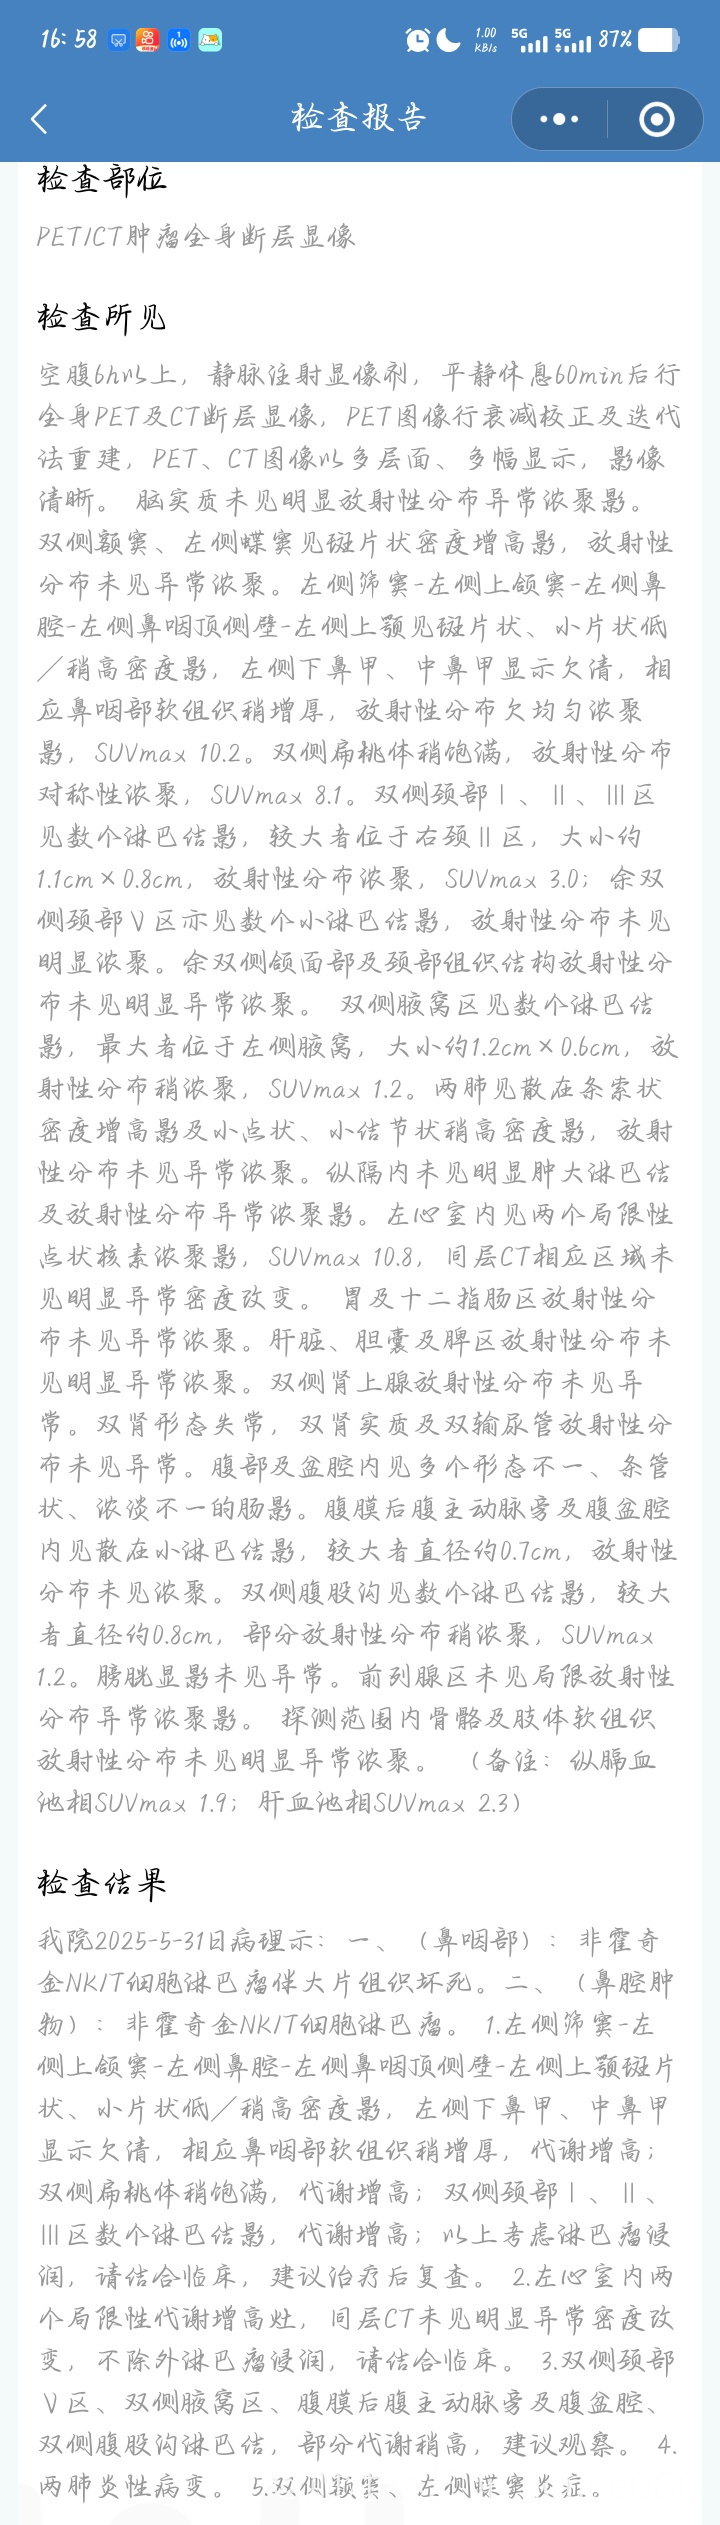 16:58
1.00
KB/s
5G
5G
87%
检查报告
检查部位
PET/CT肿瘤全身断层显像
检查所见
空腹6h以上，静脉注射显像剂，平静休息60min后行
全身PET及CT断层显像，PET图像行衰减校正及迭代
法重建，PET、CT图像以多层面、多幅显示，影像
清晰。 脑实质未见明显放射性分布异常浓聚影。
双侧额窦、左侧蝶窦见斑片状密度增高影，放射性
分布未见异常浓聚。左侧筛窦-左侧上颌窦-左侧鼻
腔-左侧鼻咽顶侧壁-左侧上颚见斑片状、小片状低
／稍高密度影，左侧下鼻甲、中鼻甲显示欠清，相
应鼻咽部软组织稍增厚，放射性分布欠均匀浓聚
影，SUVmax 10.2。双侧扁桃体稍饱满，放射性分布
对称性浓聚，SUVmax 8.1。双侧颈部Ⅰ、Ⅱ、Ⅲ区
见数个淋巴结影，较大者位于右颈Ⅱ区，大小约
1.1cm×0.8cm，放射性分布浓聚，SUVmax 3.0；余双
侧颈部Ⅴ区亦见数个小淋巴结影，放射性分布未见
明显浓聚。余双侧颌面部及颈部组织结构放射性分
布未见明显异常浓聚。 双侧腋窝区见数个淋巴结
影，最大者位于左侧腋窝，大小约1.2cm×0.6cm，放
射性分布稍浓聚，SUVmax 1.2。两肺见散在条索状
密度增高影及小点状、小结节状稍高密度影，放射
性分布未见异常浓聚。纵隔内未见明显肿大淋巴结
及放射性分布异常浓聚影。左心室内见两个局限性
点状核素浓聚影，SUVmax 10.8，同层CT相应区域未
见明显异常密度改变。 胃及十二指肠区放射性分
布未见异常浓聚。肝脏、胆囊及脾区放射性分布未
见明显异常浓聚。双侧肾上腺放射性分布未见异
常。双肾形态失常，双肾实质及双输尿管放射性分
布未见异常。腹部及盆腔内见多个形态不一、条管
状、浓淡不一的肠影。腹膜后腹主动脉旁及腹盆腔
内见散在小淋巴结影，较大者直径约0.7cm，放射性
分布未见浓聚。双侧腹股沟见数个淋巴结影，较大
者直径约0.8cm，部分放射性分布稍浓聚，SUVmax
1.2。膀胱显影未见异常。前列腺区未见局限放射性
分布异常浓聚影。 探测范围内骨骼及肢体软组织
放射性分布未见明显异常浓聚。 （备注：纵膈血
池相SUVmax 1.9；肝血池相SUVmax 2.3）
检查结果
我院2025-5-31日病理示：一、（鼻咽部）：非霍奇
金NK/T细胞淋巴瘤伴大片组织坏死。二、（鼻腔肿
物）：非霍奇金NK/T细胞淋巴瘤。 1.左侧筛窦-左
侧上颌窦-左侧鼻腔-左侧鼻咽顶侧壁-左侧上颚斑片
状、小片状低／稍高密度影，左侧下鼻甲、中鼻甲
显示欠清，相应鼻咽部软组织稍增厚，代谢增高；
双侧扁桃体稍饱满，代谢增高；双侧颈部Ⅰ、Ⅱ、
Ⅲ区数个淋巴结影，代谢增高；以上考虑淋巴瘤浸
润，请结合临床，建议治疗后复查。 2.左心室内两
个局限性代谢增高灶，同层CT未见明显异常密度改
变，不除外淋巴瘤浸润，请结合临床。 3.双侧颈部
Ⅴ区、双侧腋窝区、腹膜后腹主动脉旁及腹盆腔、
双侧腹股沟淋巴结，部分代谢稍高，建议观察。 4.
两肺炎性病变。 5.双侧额窦、左侧蝶窦炎症。